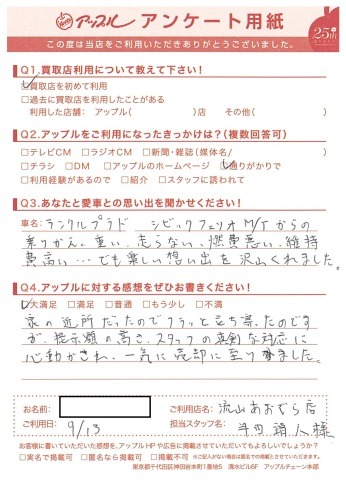 アップル アンケート用紙
25th
この度は当店をご利用いただきありがとうございました。
Q1.買取店利用について教えて下さい!
□買取店を初めて利用
□過去に買取店を利用したことがある
利用した店舗: アップル( )店 その他( )
Q2.アップルをご利用になったきっかけは?(複数回答可)
□テレビCM □ラジオCM □新聞・雑誌(媒体名/ )
□チラシ □DM □アップルのホームページ □通りがかりで
□利用経験があるので □紹介 □スタッフに誘われて
Q3.あなたと愛車との思い出を聞かせください!
車名: ランクルプラド シビックフェリオM/Tからの
乗りかえ。重い、走らない、燃費悪い、維持
費高い…でも楽しい想い出を沢山くれました。
Q4.アップルに対する感想をぜひお書きください!
□大満足 □満足 □普通 □もう少し □不満
家の近所だったのでフラッと立ち寄ったのです
が、提示額の高さ、スタッフの真剣な対応に
心動かされ、一気に売却に至りました。
お名前: ご利用店名: 流山おおたか店
ご利用日: 9/13 担当スタッフ名: 様
お客様に書いていただいた感想を、アップルHPや広告に掲載させていただいてもよろしいでしょうか?
□実名で掲載可 □匿名なら掲載可 □掲載不可 ※ご記入がない場合は匿名での掲載とさせていただきます。
東京都千代田区神田岩本町1番地5 清水ビル6F アップルチェーン本部